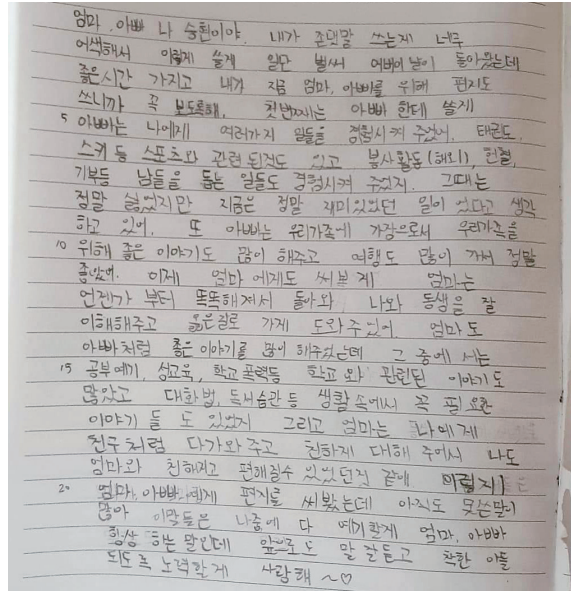 엄마, 아빠 나 승현이야. 내가 존댓말 쓰는게 너무
어색해서 이렇게 쓸게 일단 벌써 어버이날이 돌아왔는데
좋은시간 가지고 내가 지금 엄마, 아빠를 위해 편지도
쓰니까 꼭 보도록해. 첫번째는 아빠 한테 쓸게
5 아빠는 나에게 여러가지 일들을 경험시켜 주었어. 태권도,
스키 등 스포츠와 관련된것도 있고 봉사활동(해외), 헌혈,
기부등 남들을 돕는 일들도 경험시켜 주었지. 그때는
정말 싫었지만 지금은 정말 재미있었던 일이 었다고 생각
하고 있어. 또 아빠는 우리가족에 가장으로서 우리가족을
10 위해 좋은 이야기도 많이 해주고 여행도 많이 가서 정말
좋았어. 이제 엄마 에게도 써볼게 엄마는
언젠가 부터 똑똑해져서 돌아와 나와 동생을 잘
이해해주고 옳은길로 가게 도와주었어. 엄마도
아빠처럼 좋은이야기를 많이 해주었는데 그 중에서는
15 공부얘기, 성교육, 학교폭력등 학교와 관련된 이야기도
많았고 대화법, 독서습관 등 생활속에서 꼭 필요한
이야기 들도 있었지 그리고 엄마는 나에게
친구처럼 다가와주고 친하게 대해 주어서 나도
엄마와 친해지고 편해질수 있었던것 같애 이렇게
20 엄마, 아빠에게 편지를 써봤는데 아직도 못쓴말이
많아 이말들은 나중에 다 얘기할게 엄마, 아빠
항상 하는 말인데 앞으로도 말 잘듣고 착한 아들
되도록 노력할게 사랑해 ~♡